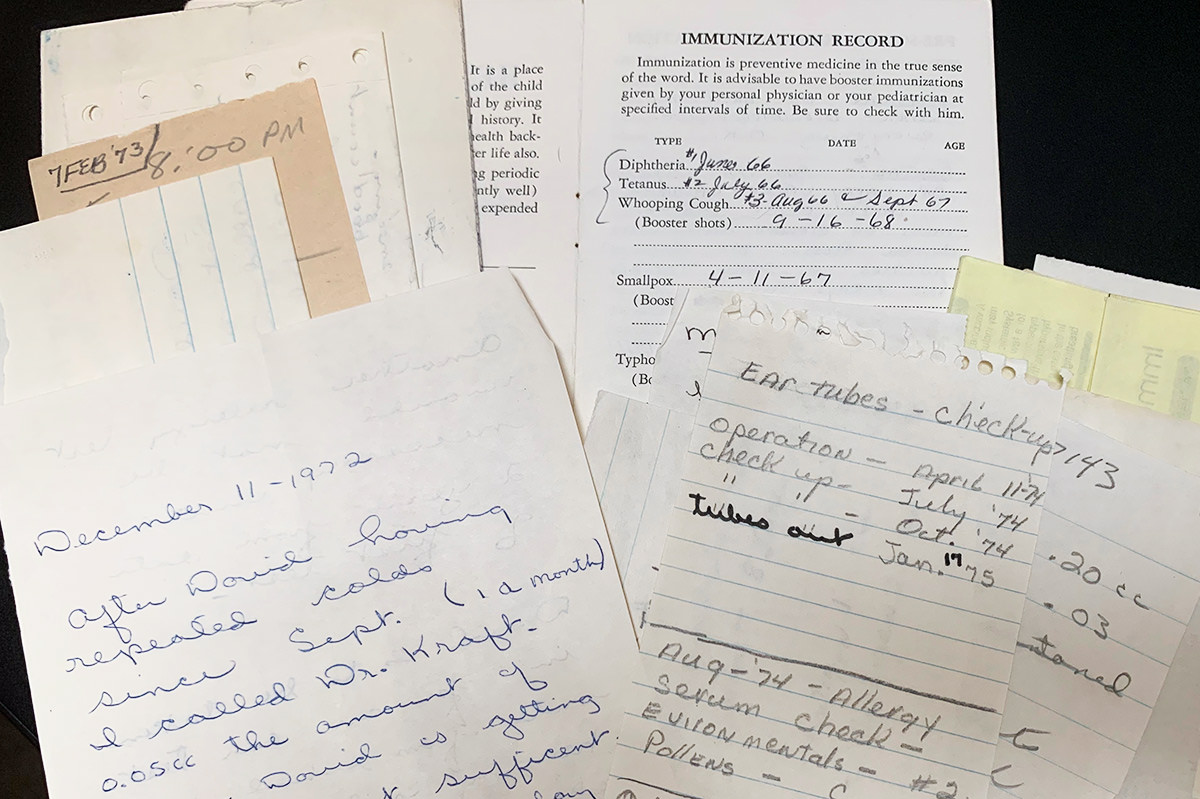 It is a place
of the child
ld by giving
history. It
ealth back-
er life also.
g periodic
ntly well)
expended
IMMUNIZATION RECORD
Immunization is preventive medicine in the true sense
of the word. It is advisable to have booster immunizations
given by your personal physician or your pediatrician at
specified intervals of time. Be sure to check with him.
TYPE DATE AGE
Diphtheria #1 June 66
Tetanus #2 July 66
Whooping Cough #3-Aug 66 Sept 67
(Booster shots) 9-16-68
Smallpox 4-11-67
(Boost
Typho
(Bo
7 FEB '73
8:00 PM
December 11-1972
After David having
repeated colds
since Sept. (1 a month)
I called Dr. Kraft-
0.05cc the amount of
David is getting
sufficent
EAR TUBES - check-up
operation - April 11-74
check up - July '74
" " - Oct. '74
tubes out Jan. 17 '75
Aug-'74 - Allergy
serum check -
EVIRONmentals - #2
POLLENS - C
143
.20 cc
.03